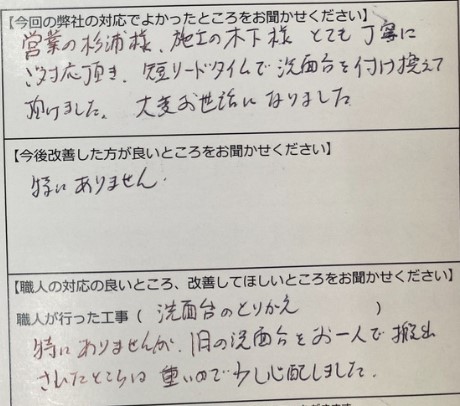 【今回の弊社の対応でよかったところをお聞かせください】
営業の杉浦様、施工の木下様 とても丁寧に
ご対応頂き、短リードタイムで洗面台を付け換えて
頂けました。大変お世話になりました
【今後改善した方が良いところをお聞かせください】
特にありません.
【職人の対応の良いところ、改善してほしいところをお聞かせください】
職人が行った工事（ 洗面台のとりかえ ）
特にありませんが、旧の洗面台をお一人で搬出
されたところは重いので少し心配しました.